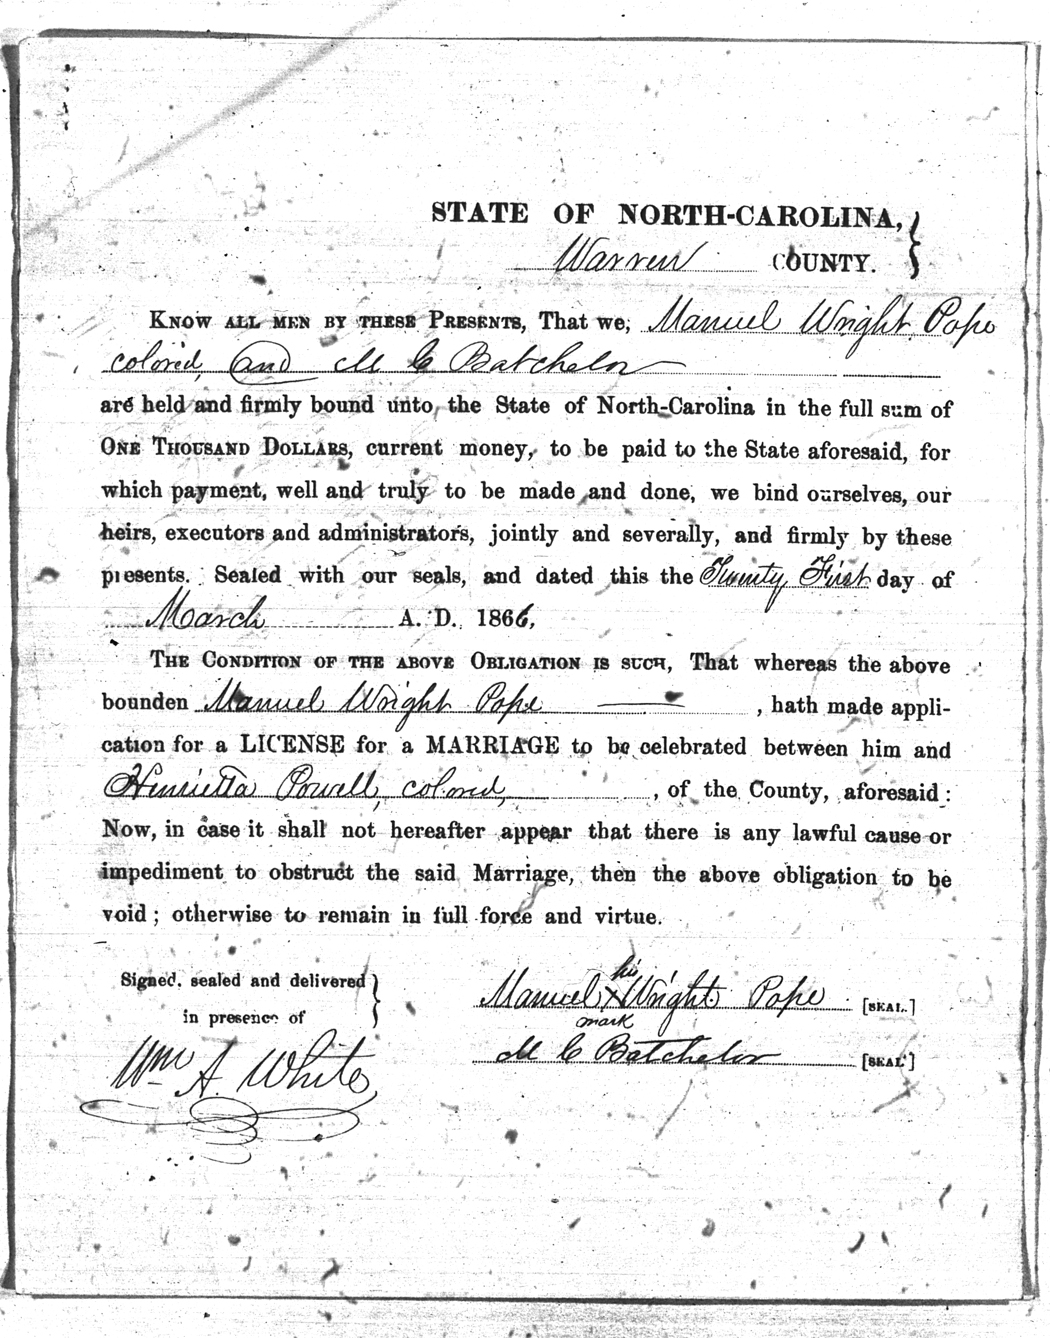 STATE OF NORTH-CAROLINA,
Warren COUNTY.
KNOW ALL MEN BY THESE PRESENTS, That we, Manuel Wright Pope
colored, and M C Batchelor
are held and firmly bound unto, the State of North-Carolina in the full sum of
ONE THOUSAND DOLLARS, current money, to be paid to the State aforesaid, for
which payment, well and truly to be made and done, we bind ourselves, our
heirs, executors and administrators, jointly and severally, and firmly by these
presents. Sealed with our seals, and dated this the Twenty First day of
March A. D. 1866,
THE CONDITION OF THE ABOVE OBLIGATION IS SUCH, That whereas the above
bounden Manuel Wright Pope, hath made appli-
cation for a LICENSE for a MARRIAGE to be celebrated between him and
Henrietta Powell, colored, of the County, aforesaid:
Now, in case it shall not hereafter appear that there is any lawful cause or
impediment to obstruct the said Marriage, then the above obligation to be
void; otherwise to remain in full force and virtue.
Signed, sealed and delivered
in presence of
Wm A. White
his
Manuel X Wright Pope [SEAL.]
mark
M C Batchelor [SEAL]